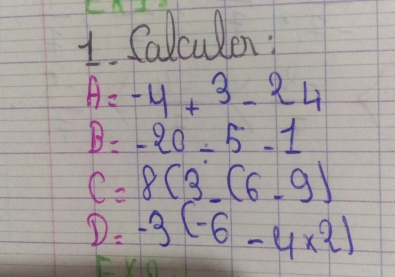 1. Calculer:
A = -4 + 3 - 24
B = -20 - 5 - 1
C = 8(3 - (6 - 9)
D = -3(-6 - 4 x 2)